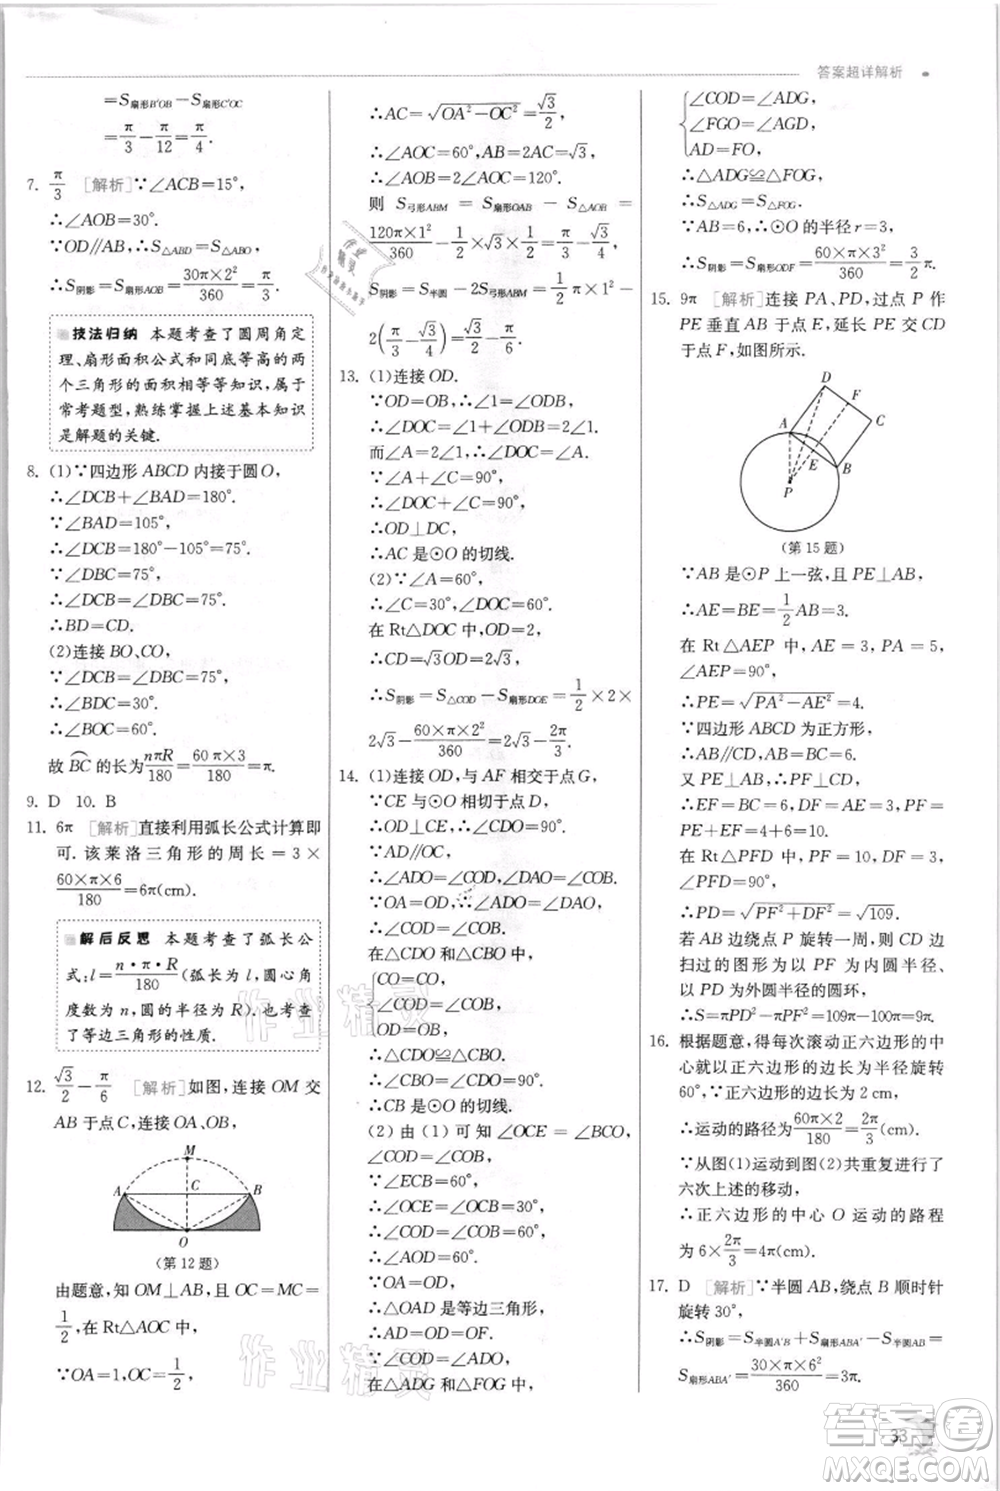 答案超详解析
=S扇形B′OB−S扇形C′OC
=π/3−π/12=π/4.
7. π/3 [解析]∵∠ACB=15°,
∴∠AOB=30°.
∵OD//AB,∴S△ABD=S△ABO.
∴S阴影=S扇形AOB=30π×2²/360=π/3.
技法归纳 本题考查了圆周角定
理、扇形面积公式和同底等高的两
个三角形的面积相等等知识,属于
常考题型,熟练掌握上述基本知识
是解题的关键.
8. (1)∵四边形ABCD内接于圆O,
∴∠DCB+∠BAD=180°.
∵∠BAD=105°,
∴∠DCB=180°−105°=75°.
∵∠DBC=75°,
∴∠DCB=∠DBC=75°.
∴BD=CD.
(2)连接BO,CO,
∵∠DCB=∠DBC=75°,
∴∠BDC=30°.
∴∠BOC=60°.
故BC的长为nπR/180=60π×3/180=π.
9. D 10. B
11. 6π [解析]直接利用弧长公式计算即
可. 该莱洛三角形的周长=3×
60×π×6/180=6π(cm).
解后反思 本题考查了弧长公
式:l=n·π·R/180(弧长为l,圆心角
度数为n,圆的半径为R).也考查
了等边三角形的性质.
12. √3/2−π/6 [解析]如图,连接OM交
AB于点C,连接OA、OB,
M
A C B
O
(第12题)
由题意知,OM⊥AB,且OC=MC=
1/2,在Rt△AOC中,
∵OA=1,OC=1/2,
∴AC=√(OA²−OC²)=√3/2,
∴∠AOC=60°,AB=2AC=√3,
∴∠AOB=2∠AOC=120°.
则 S弓形ABM=S扇形OAB−S△AOB=
120π×1²/360−1/2×√3×1/2=π/3−√3/4,
S阴影=S半圆−2S弓形ABM=1/2π×1²−
2(π/3−√3/4)=√3/2−π/6.
13. (1)连接OD.
∵OD=OB,∴∠1=∠ODB.
∴∠DOC=∠1+∠ODB=2∠1.
而∠A=2∠1,∴∠DOC=∠A.
∵∠A+∠C=90°,
∴∠DOC+∠C=90°.
∴OD⊥DC.
∴AC是⊙O的切线.
(2)∵∠A=60°,
∴∠C=30°,∠DOC=60°.
在Rt△DOC中,OD=2,
∴CD=√3OD=2√3,
∴S阴影=S△COD−S扇形DOE=1/2×2×
2√3−60×π×2²/360=2√3−2π/3.
14. (1)连接OD,与AF相交于点G,
∵CE与⊙O相切于点D,
∴OD⊥CE,∴∠CDO=90°.
∵AD//OC,
∴∠ADO=∠COD,∠DAO=∠COB.
∵OA=OD,∴∠ADO=∠DAO,
∴∠COD=∠COB.
在△CDO和△CBO中,
CO=CO,
∠COD=∠COB,
OD=OB,
∴△CDO≌△CBO.
∴∠CBO=∠CDO=90°.
∴CB是⊙O的切线.
(2)由(1)可知∠OCE=∠BCO,
∠COD=∠COB,
∵∠ECB=60°,
∴∠OCE=∠OCB=30°.
∴∠COD=∠COB=60°.
∴∠AOD=60°.
∵OA=OD,
∴△OAD是等边三角形,
∴AD=OD=OF.
∵∠COB=∠DAO,
在△ADG和△FOG中,
∠COD=∠ADG,
∠FGO=∠AGD,
AD=FO,
∴△ADG≌△FOG.
∴S△ADG=S△FOG.
∵AB=6,∴⊙O的半径r=3,
∴S阴影=S扇形ODF=60π×3²/360=3/2π.
15. 9π [解析]连接PA、PD,过点P作
PE垂直AB于点E,延长PE交CD
于点F,如图所示.
D
F
A C
E B
P
(第15题)
∵AB是⊙P上一弦,且PE⊥AB,
∴AE=BE=1/2AB=3.
在Rt△AEP中,AE=3,PA=5,
∠AEP=90°,
∴PE=√(PA²−AE²)=4.
∵四边形ABCD为正方形,
∴AB//CD,AB=BC=6.
又∵PE⊥AB,∴PF⊥CD,
∴EF=BC=6,DF=AE=3,
∴PF=PE+EF=4+6=10.
在Rt△PFD中,PF=10,DF=3,
∠PFE=90°,
∴PD=√(PF²+DF²)=√109.
若AB边绕点P旋转一周,则CD边
扫过的图形为以PF为内圆半径、
以PD为外圆半径的圆环,
∴S=πPD²−πPF²=109π−100π=9π.
16. 根据题意,得每次滚动正六边形的中
心就以正六边形的边长为半径旋转
60°.∵正六边形的边长为2 cm,
∴运动的路径为60π×2/180=2π/3(cm).
∵从图(1)运动到图(2)共重复进行了
六次上述的移动,
∴正六边形的中心O运动的路程
为6×2π/3=4π(cm).
17. D [解析]∵半圆AB,绕点B顺时针
旋转30°,
∴S阴影=S半圆A′B+S扇形ABA′−S半圆AB=
S扇形ABA′=30×π×6²/360=3π.
33
作业精灵
作业精灵
答案圈
MXQE.COM